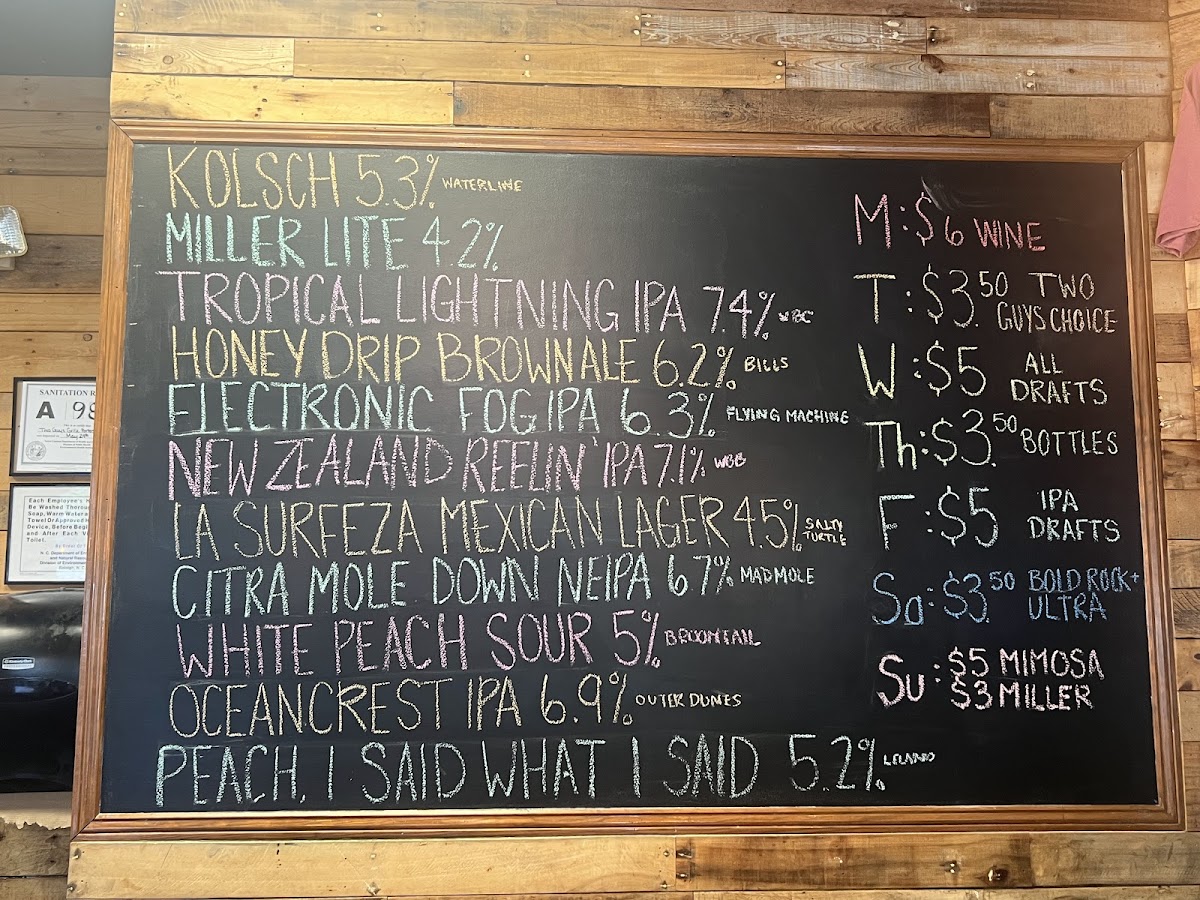 KOLSCH 5.3% WATERLINE
MILLER LITE 4.2%
TROPICAL LIGHTNING IPA 7.4% WBC
HONEY DRIP BROWN ALE 6.2% BILLS
ELECTRONIC FOG IPA 6.3% FLYING MACHINE
NEW ZEALAND REELIN' IPA 7.1% WBB
LA SURFEZA MEXICAN LAGER 4.5% SALTY
TURTLE
CITRA MOLE DOWN NEIPA 6.7% MAD MOLE
WHITE PEACH SOUR 5% BROOMTAIL
OCEANCREST IPA 6.9% OUTER DUNES
PEACH, I SAID WHAT I SAID 5.2% LELAND
M: $6 WINE
T: $3.50 TWO
GUYS CHOICE
W: $5 ALL
DRAFTS
Th: $3.50 BOTTLES
F: $5 IPA
DRAFTS
Sa: $3.50 BOLD ROCK +
ULTRA
Su: $5 MIMOSA
$3 MILLER
SANITATION
A 98
May
Each Employee's
Be Washed
Soap, Warm Water
Towel Or Approved
Device, Before
and After Each
Toilet.
N.C. Department of
and Natural
Division of